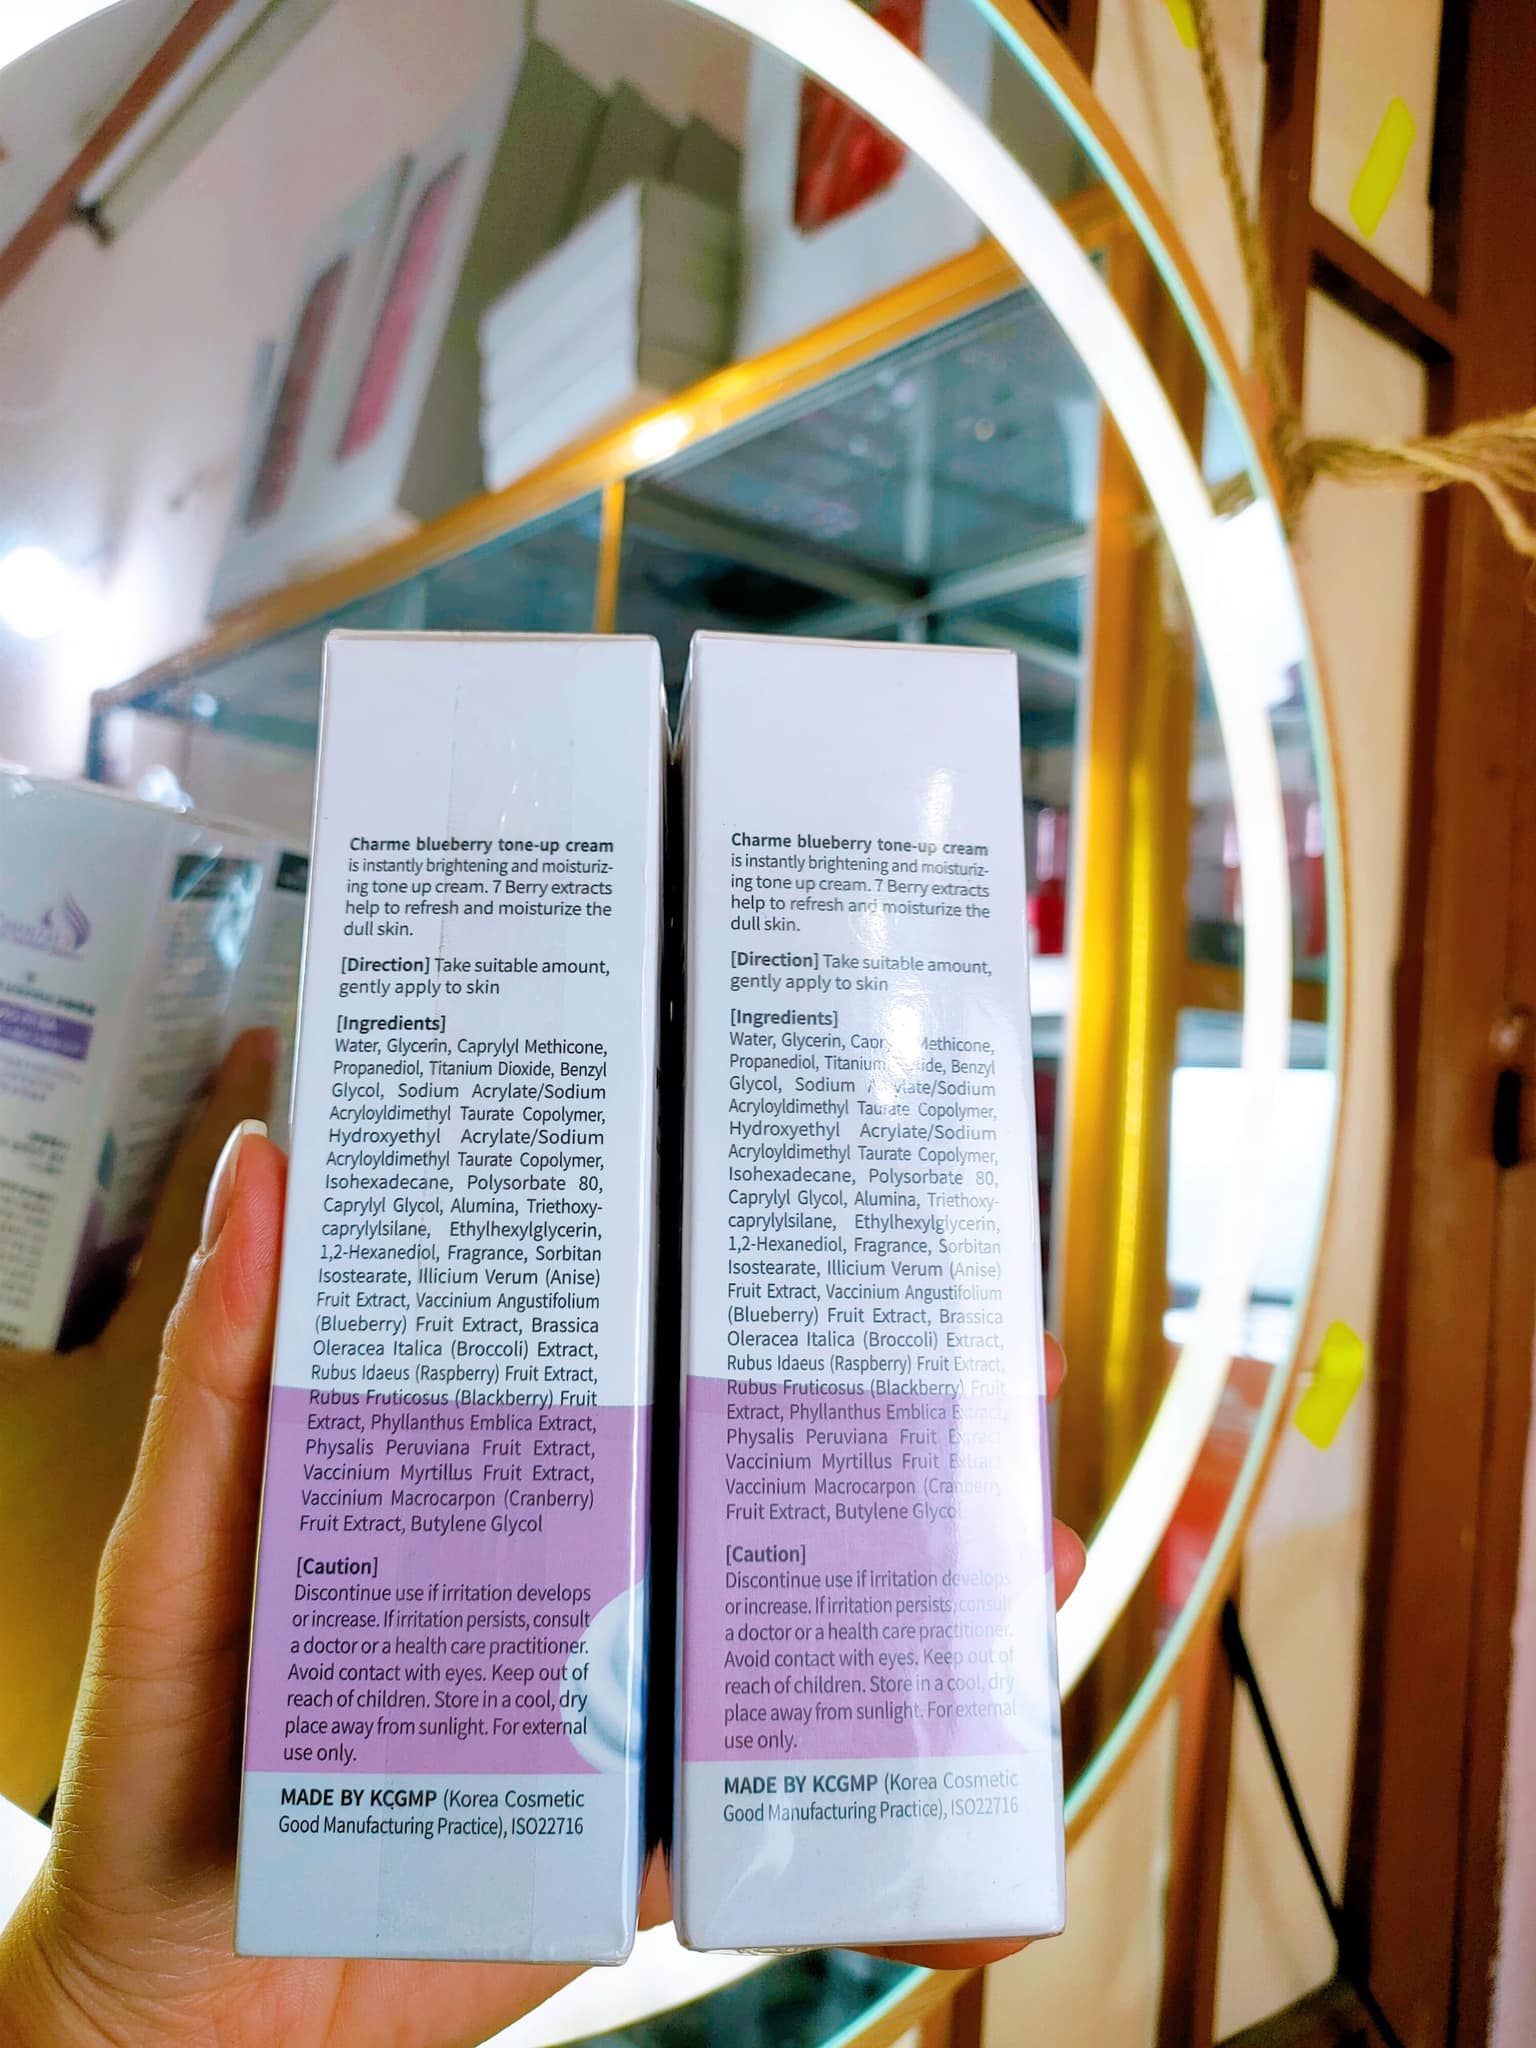 Charme blueberry tone-up cream
is instantly brightening and moisturiz-
ing tone up cream. 7 Berry extracts
help to refresh and moisturize the
dull skin.
[Direction] Take suitable amount,
gently apply to skin
[Ingredients]
Water, Glycerin, Caprylyl Methicone,
Propanediol, Titanium Dioxide, Benzyl
Glycol, Sodium Acrylate/Sodium
Acryloyldimethyl Taurate Copolymer,
Hydroxyethyl Acrylate/Sodium
Acryloyldimethyl Taurate Copolymer,
Isohexadecane, Polysorbate 80,
Caprylyl Glycol, Alumina, Triethoxy-
caprylylsilane, Ethylhexylglycerin,
1,2-Hexanediol, Fragrance, Sorbitan
Isostearate, Illicium Verum (Anise)
Fruit Extract, Vaccinium Angustifolium
(Blueberry) Fruit Extract, Brassica
Oleracea Italica (Broccoli) Extract,
Rubus Idaeus (Raspberry) Fruit Extract,
Rubus Fruticosus (Blackberry) Fruit
Extract, Phyllanthus Emblica Extract,
Physalis Peruviana Fruit Extract,
Vaccinium Myrtillus Fruit Extract,
Vaccinium Macrocarpon (Cranberry)
Fruit Extract, Butylene Glycol
[Caution]
Discontinue use if irritation develops
or increase. If irritation persists, consult
a doctor or a health care practitioner.
Avoid contact with eyes. Keep out of
reach of children. Store in a cool, dry
place away from sunlight. For external
use only.
MADE BY KCGMP (Korea Cosmetic
Good Manufacturing Practice), ISO22716
Charme blueberry tone-up cream
is instantly brightening and moisturiz-
ing tone up cream. 7 Berry extracts
help to refresh and moisturize the
dull skin.
[Direction] Take suitable amount,
gently apply to skin
[Ingredients]
Water, Glycerin, Methicone,
Propanediol, Titanium Benzyl
Glycol, Sodium Acrylate/Sodium
Acryloyldimethyl Taurate Copolymer,
Hydroxyethyl Acrylate/Sodium
Acryloyldimethyl Taurate Copolymer,
Isohexadecane, Polysorbate 80,
Caprylyl Glycol, Alumina, Triethoxy-
caprylylsilane, Ethylhexylglycerin,
1,2-Hexanediol, Fragrance, Sorbitan
Isostearate, Illicium Verum (Anise)
Fruit Extract, Vaccinium Angustifolium
(Blueberry) Fruit Extract, Brassica
Oleracea Italica (Broccoli) Extract,
Rubus Idaeus (Raspberry) Fruit Extract,
Rubus Fruticosus (Blackberry) Fruit
Extract, Phyllanthus Emblica Extract,
Physalis Peruviana Fruit Extract,
Vaccinium Myrtillus Fruit Extract,
Vaccinium Macrocarpon (Cranberry)
Fruit Extract, Butylene Glycol
[Caution]
Discontinue use if irritation develops
or increase. If irritation persists, consult
a doctor or a health care practitioner.
Avoid contact with eyes. Keep out of
reach of children. Store in a cool, dry
place away from sunlight. For external
use only.
MADE BY KCGMP (Korea Cosmetic
Good Manufacturing Practice), ISO22716